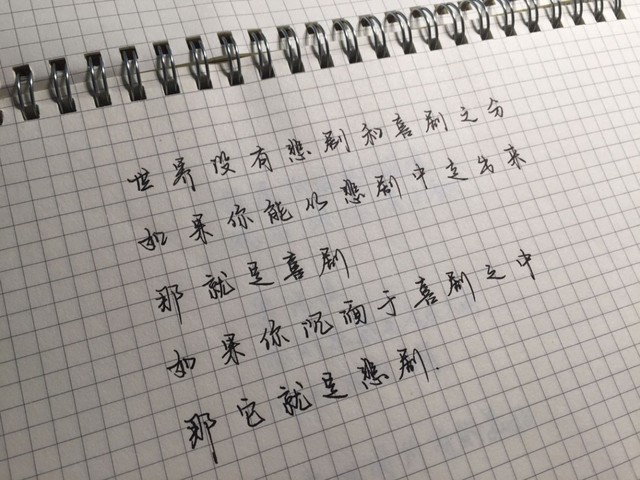 世界没有悲剧和喜剧之分
如果你能从悲剧中走出来
那就是喜剧
如果你沉湎于喜剧之中
那它就是悲剧.